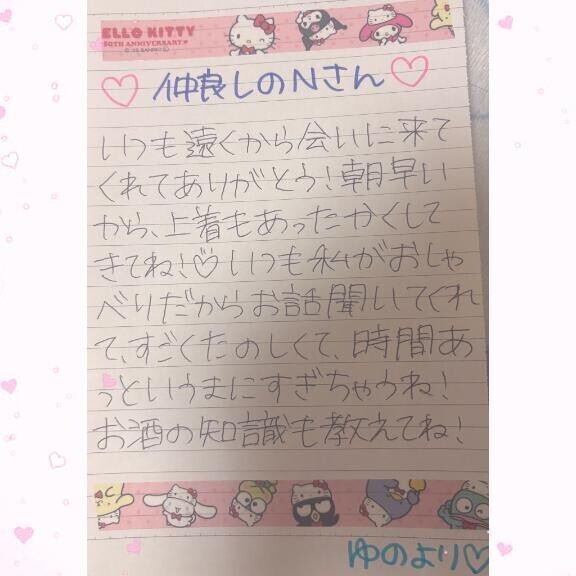 ELLO KITTY
50TH ANNIVERSARY
仲良しのNさん
いつも遠くから会いに来て
くれてありがとう！朝早い
から、上着もあったかくして
きてね！♡いつも私がおしゃ
べりだからお話聞いてくれ
て、すごくたのしくて、時間あ
っというまにすぎちゃうね！
お酒の知識も教えてね！
ゆのより♡